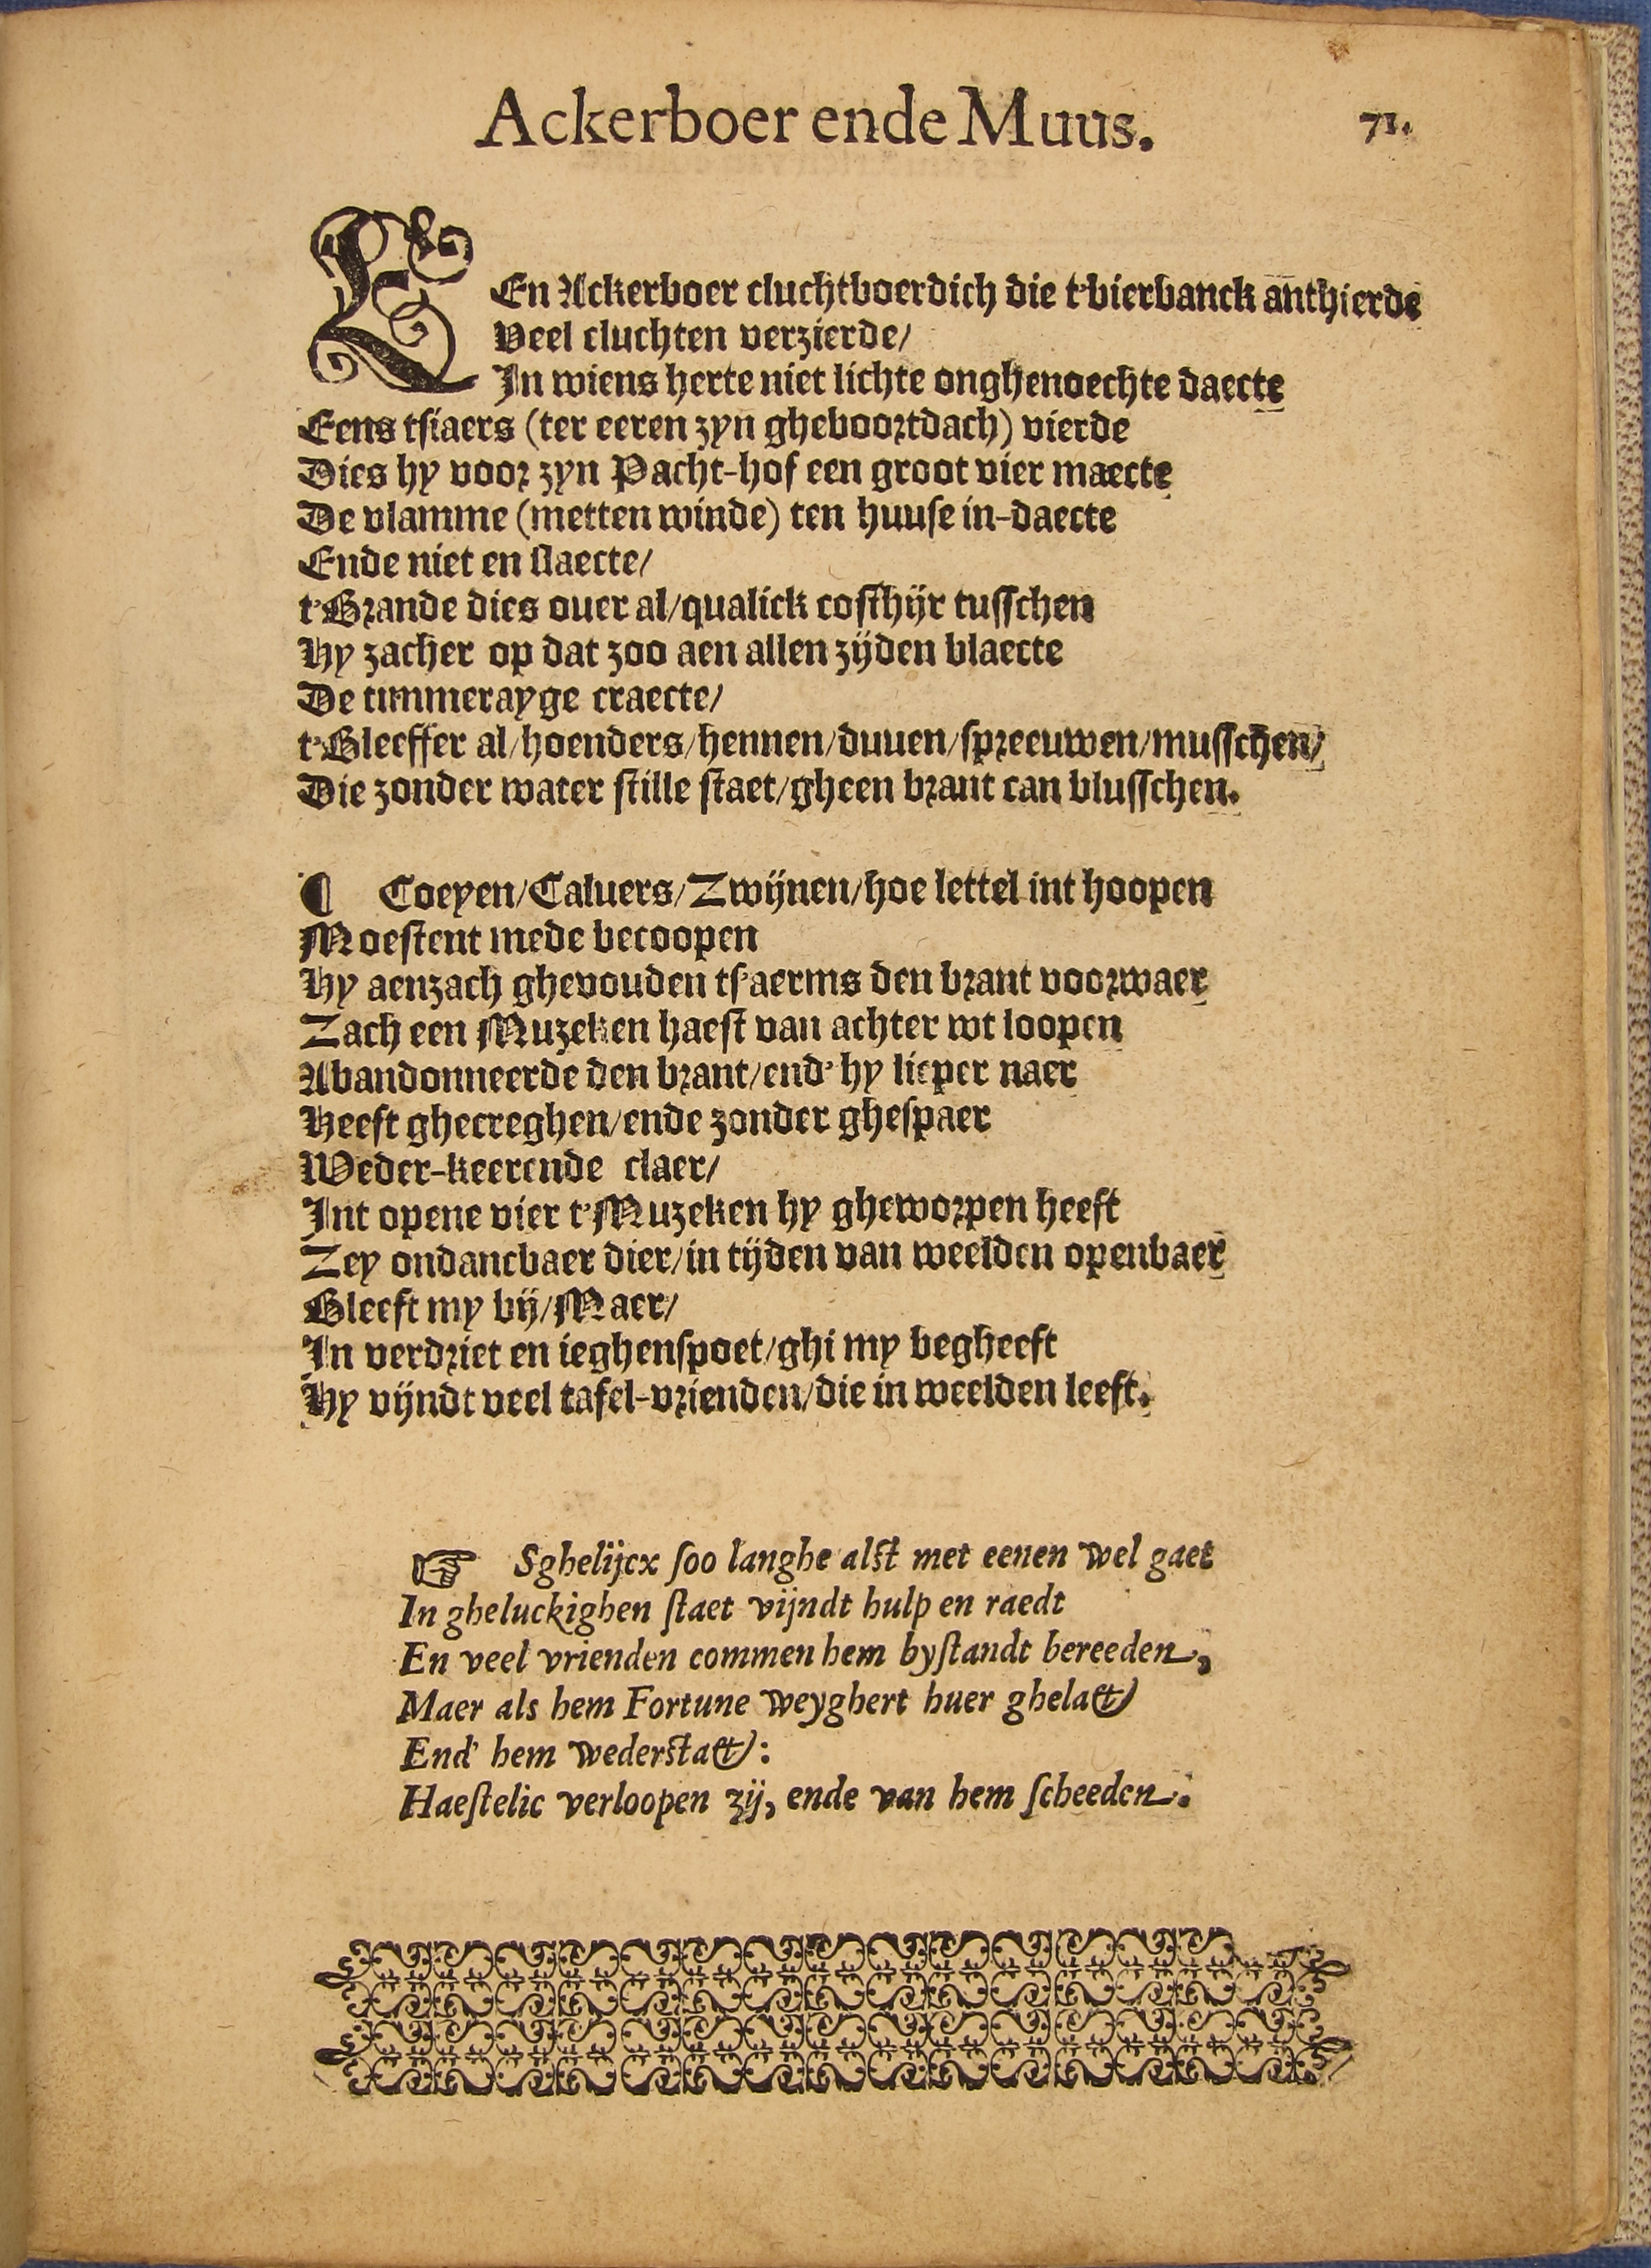 Ackerboer ende Muus.
71.
EEn Ackerboer cluchtboerdich die t'bierbanck anthierde
Veel cluchten verzierde/
In wiens herte niet lichte onghenoechte daecte
Eens tsiaers (ter eeren zyn gheboortdach) vierde
Dies hy voor zyn Pacht-hof een groot vier maecte
De vlamme (metten winde) ten huuse in-daecte
Ende niet en slaecte/
t'Brande dies ouer al/qualick costhijr tusschen
Hy zacher op dat zoo aen allen zijden blaecte
De timmerayge craecte/
t'Bleeffer al/hoenders/hennen/duuen/spreeuwen/musschen/
Die zonder water stille staet/gheen brant can blusschen.
¶ Coeyen/Caluers/Zwijnen/hoe lettel int hoopen
Moestent mede becoopen
Hy aenzach ghevouden ts'aerms den brant voorwaer
Zach een Muzeken haest van achter wt loopen
Abandonneerde den brant/end' hy lieper naer
Heeft ghecreghen/ende zonder ghespaer
Weder-keerende claer/
Int opene vier t'Muzeken hy gheworpen heeft
Zey ondancbaer dier/in tijden van weelden openbaer
Bleeft my bij/Maer/
In verdriet en ieghenspoet/ghi my begheeft
Hy vijndt veel tafel-vrienden/die in weelden leeft.
☞ Sghelijcx soo langhe alst met eenen wel gaet
In gheluckighen staet vijndt hulp en raedt
En veel vrienden commen hem bystandt bereeden,
Maer als hem Fortune weyghert huer ghelaet
End' hem wederstaet:
Haestelic verloopen zij, ende van hem scheeden.